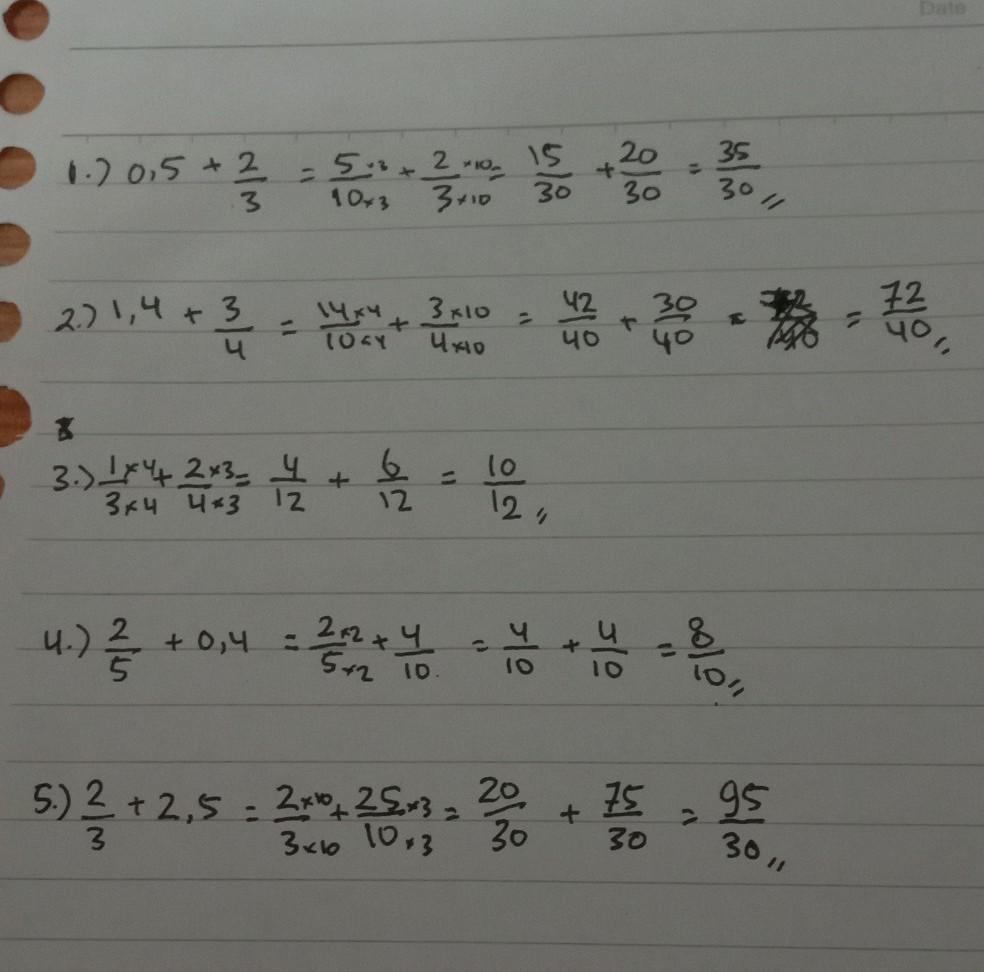 Date
1.) 0,5 + 2/3 = 5×3/10×3 + 2×10/3×10 = 15/30 + 20/30 = 35/30 //
2.) 1,4 + 3/4 = 14×4/10×4 + 3×10/4×10 = 42/40 + 30/40 = = 72/40 //
3.) 1×4/3×4 + 2×3/4×3 = 4/12 + 6/12 = 10/12 //
4.) 2/5 + 0,4 = 2×2/5×2 + 4/10 = 4/10 + 4/10 = 8/10 //
5.) 2/3 + 2,5 = 2×10/3×10 + 25×3/10×3 = 20/30 + 75/30 = 95/30 //